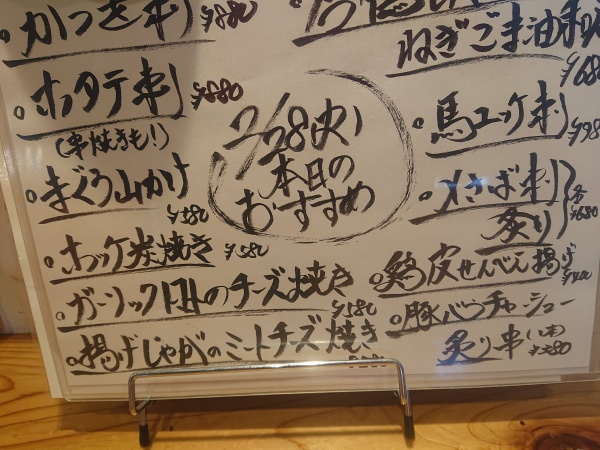 かつお刺 ¥880
ホタテ刺 ¥880
(串焼きも!)
まぐろ山かけ
¥580
ホッケ炭焼き ¥580
ガーリックトマトのチーズ焼き
¥580
揚げじゃがのミートチーズ焼き
2/28(火)
本日の
おすすめ
ねぎごま油
¥680
馬ユッケ刺
¥98
〆さば刺
炙り
¥680
鶏皮せんべえ揚げ
豚バラチャーシュー
炙り串(1本)